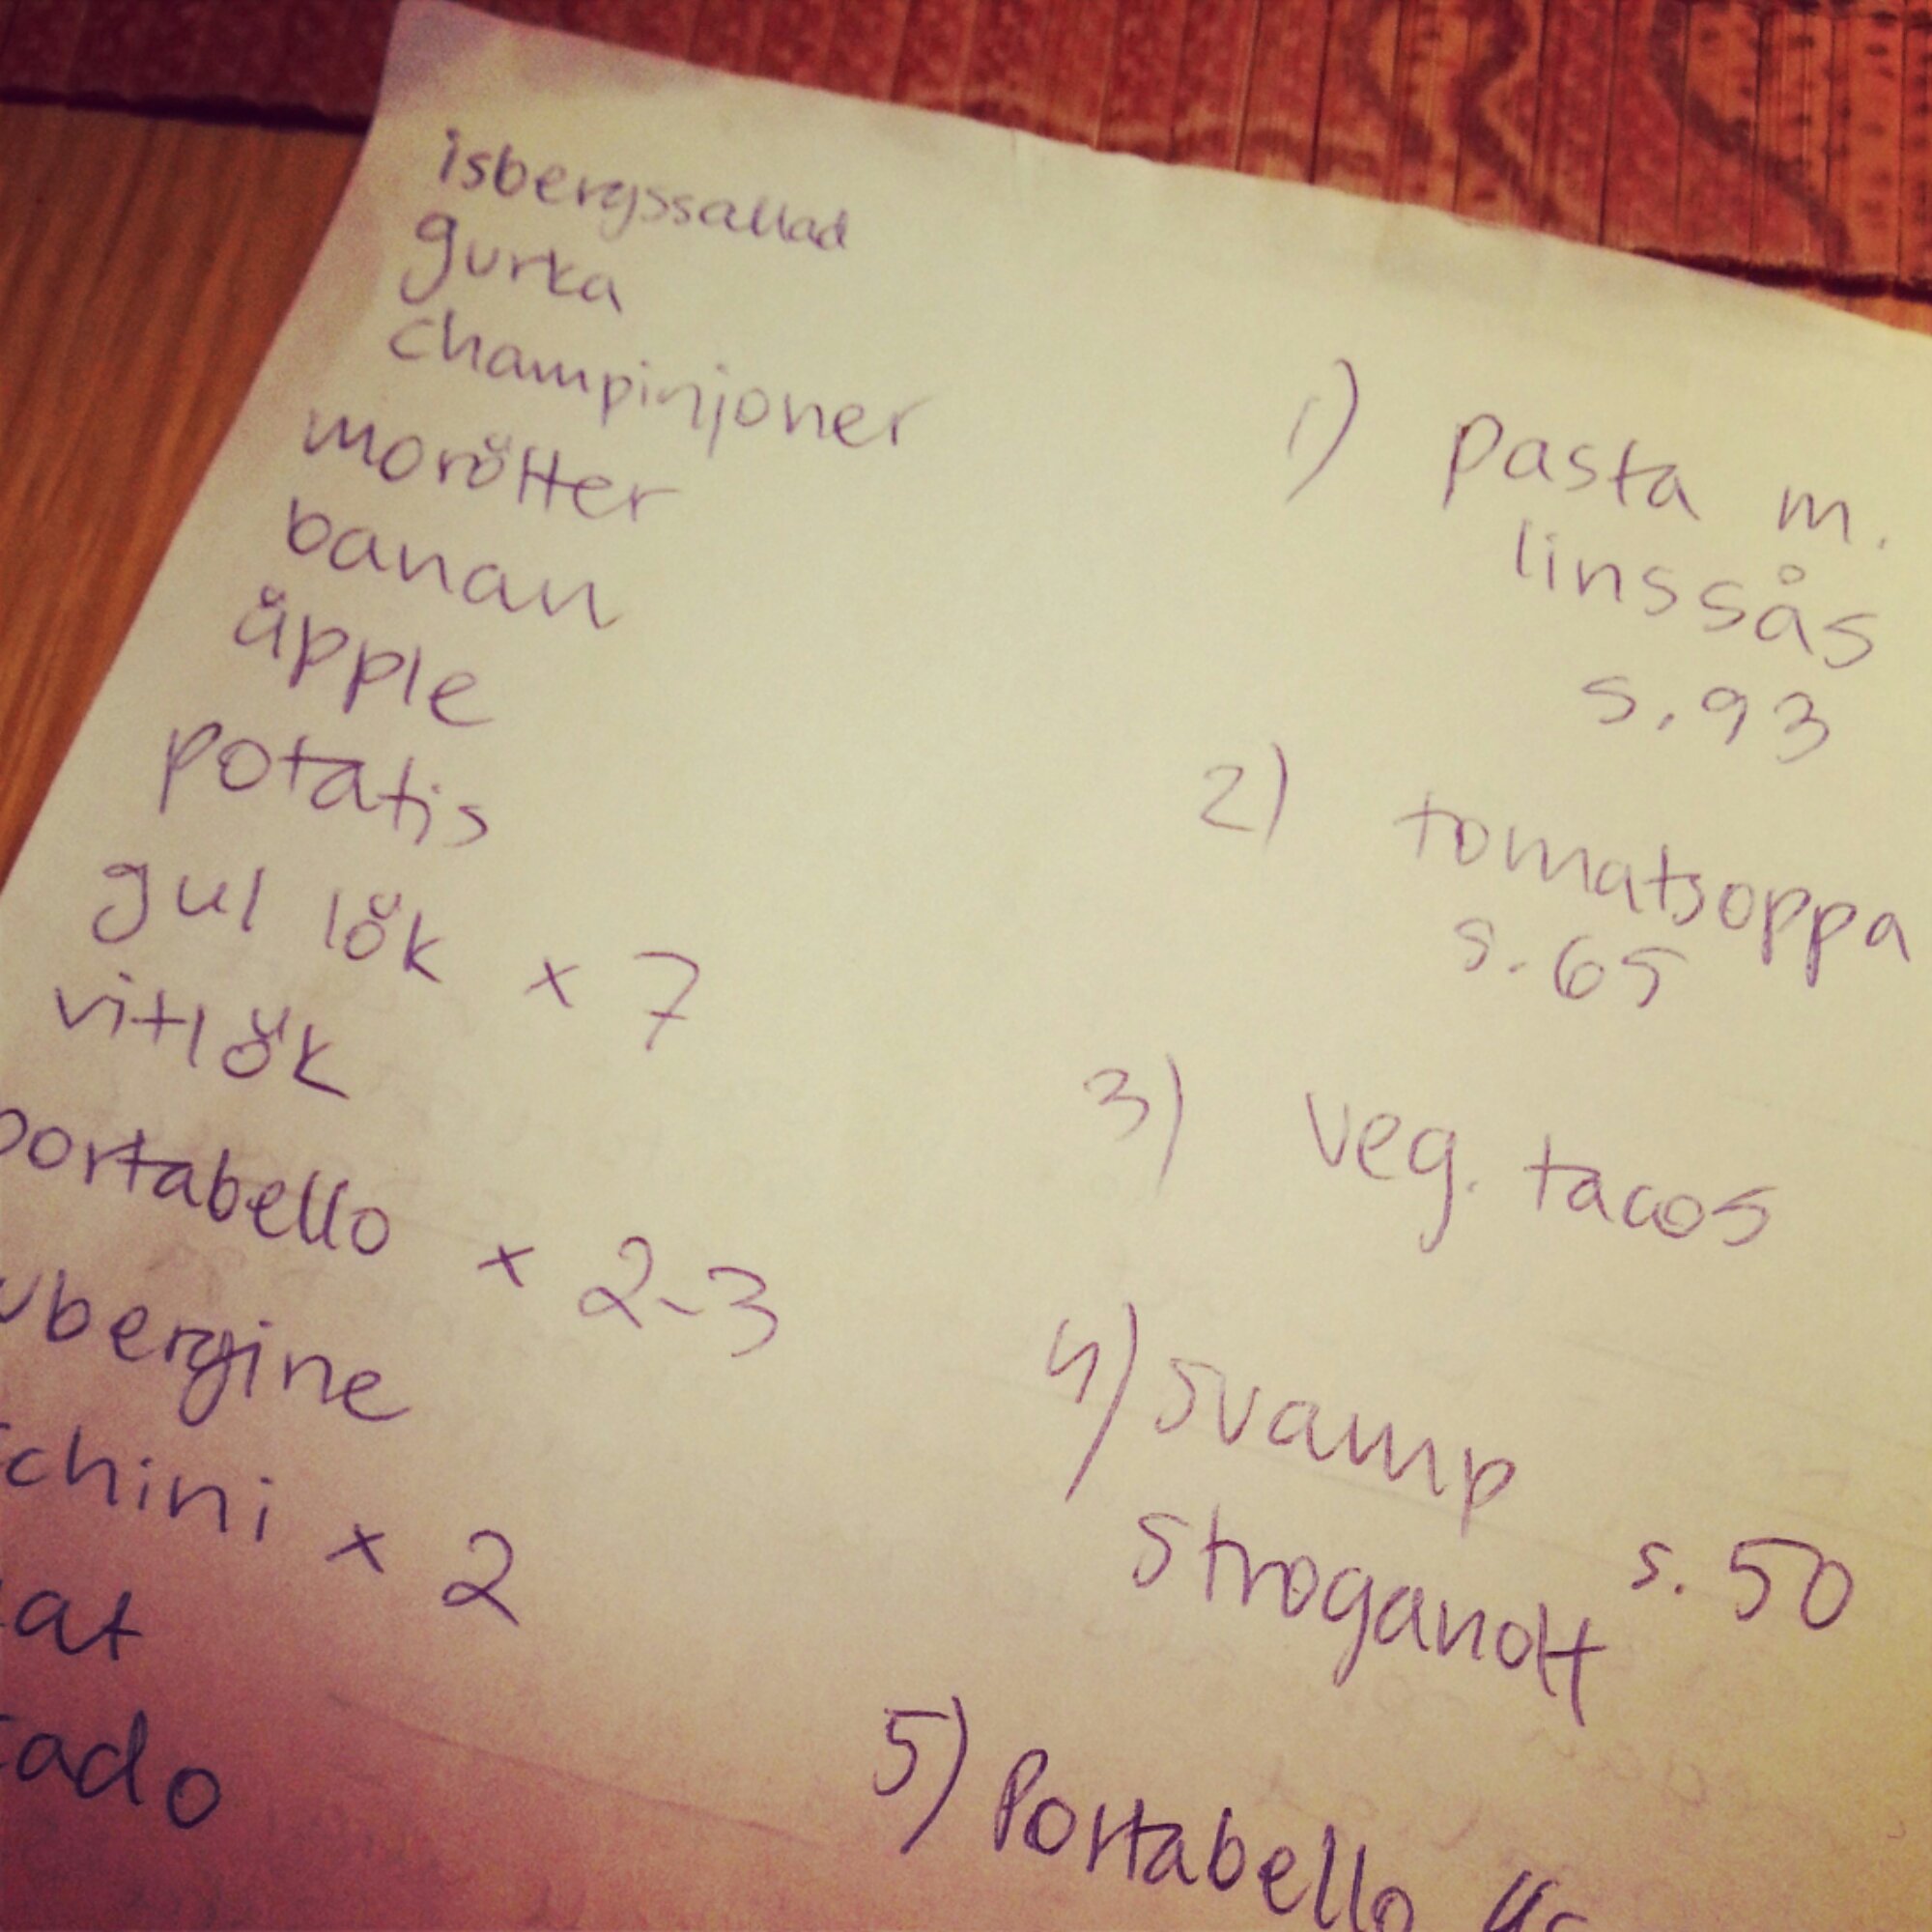 isbergssallad
gurka
champinjoner
morötter
banan
äpple
potatis
gul lök x 7
vitlök
portabello x 2-3
ubergine
chini x 2
at
ado
1) pasta m.
linssås
s. 93
2) tomatsoppa
s. 65
3) veg. tacos
4) svamp
stroganoff s. 50
5) Portabello